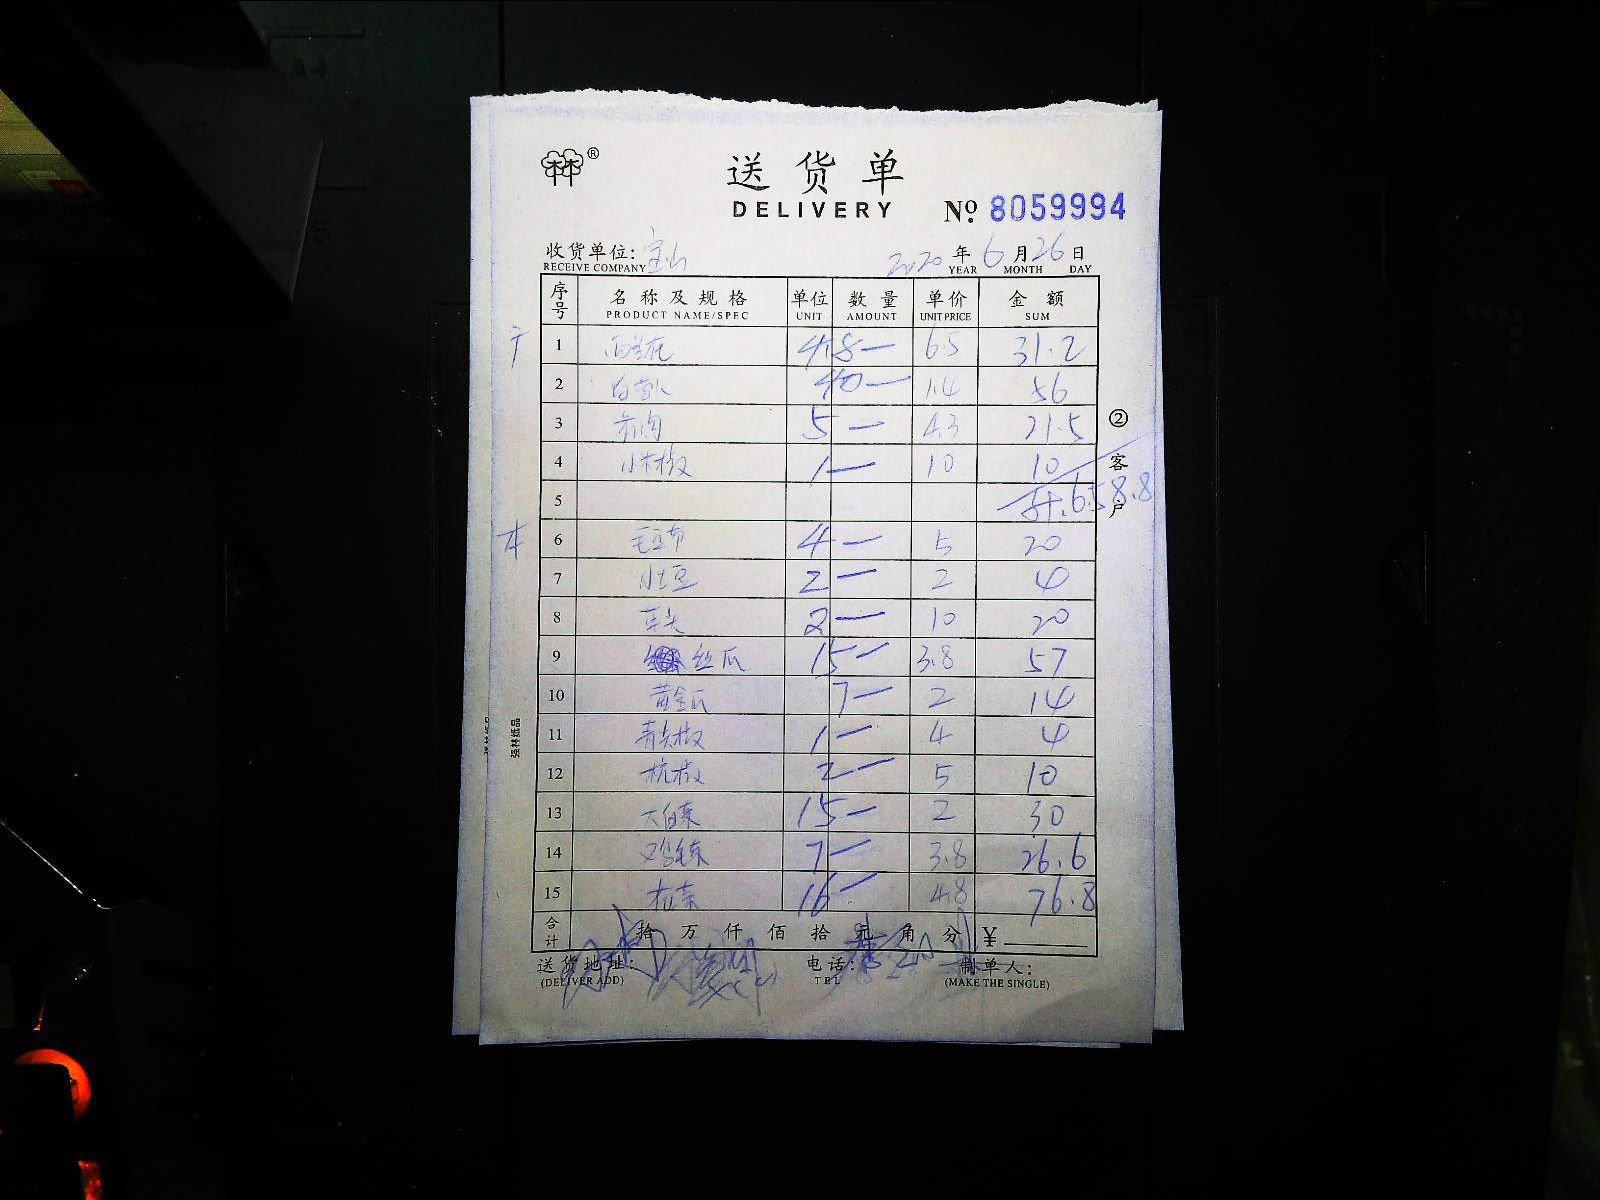 林®
送货单
DELIVERY
№ 8059994
收货单位: 宝山 2020 年 6 月 26 日
RECEIVE COMPANY YEAR MONTH DAY
序号 名称及规格 单位 数量 单价 金额
PRODUCT NAME/SPEC UNIT AMOUNT UNIT PRICE SUM
1 西兰花 4.8 — 6.5 31.2
2 40 — 1.4 56
3 5 — 4.3 21.5
4 小米椒 1 — 10 10
5 658.8
本 6 4 — 5 20
7 小土豆 2 — 2 4
8 2 — 10 20
9 丝瓜 15 — 3.8 57
10 黄金瓜 7 — 2 14
11 青尖椒 1 — 4 4
12 杭椒 2 — 5 10
13 15 — 2 30
14 7 — 3.8 26.6
15 16 — 4.8 76.8
合计 拾 万 仟 佰 拾 元 角 分 ¥
送货地址: 电话: 制单人:
(DELIVER ADD) TEL (MAKE THE SINGLE)
② 客户
强林纸品
A4